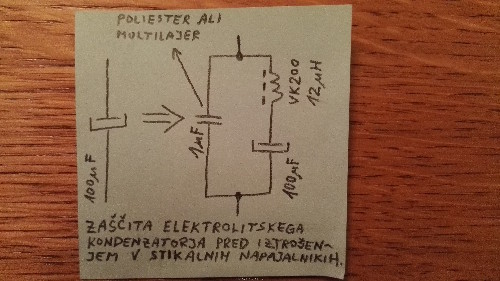 POLIESTER ALI
MULTILAJER
100µF
1µF
VK200
12µH
100µF
ZAŠČITA ELEKTROLITSKEGA
KONDENZATORJA PRED IZTROŠEN-
JEM V STIKALNIH NAPAJALNIKIH.